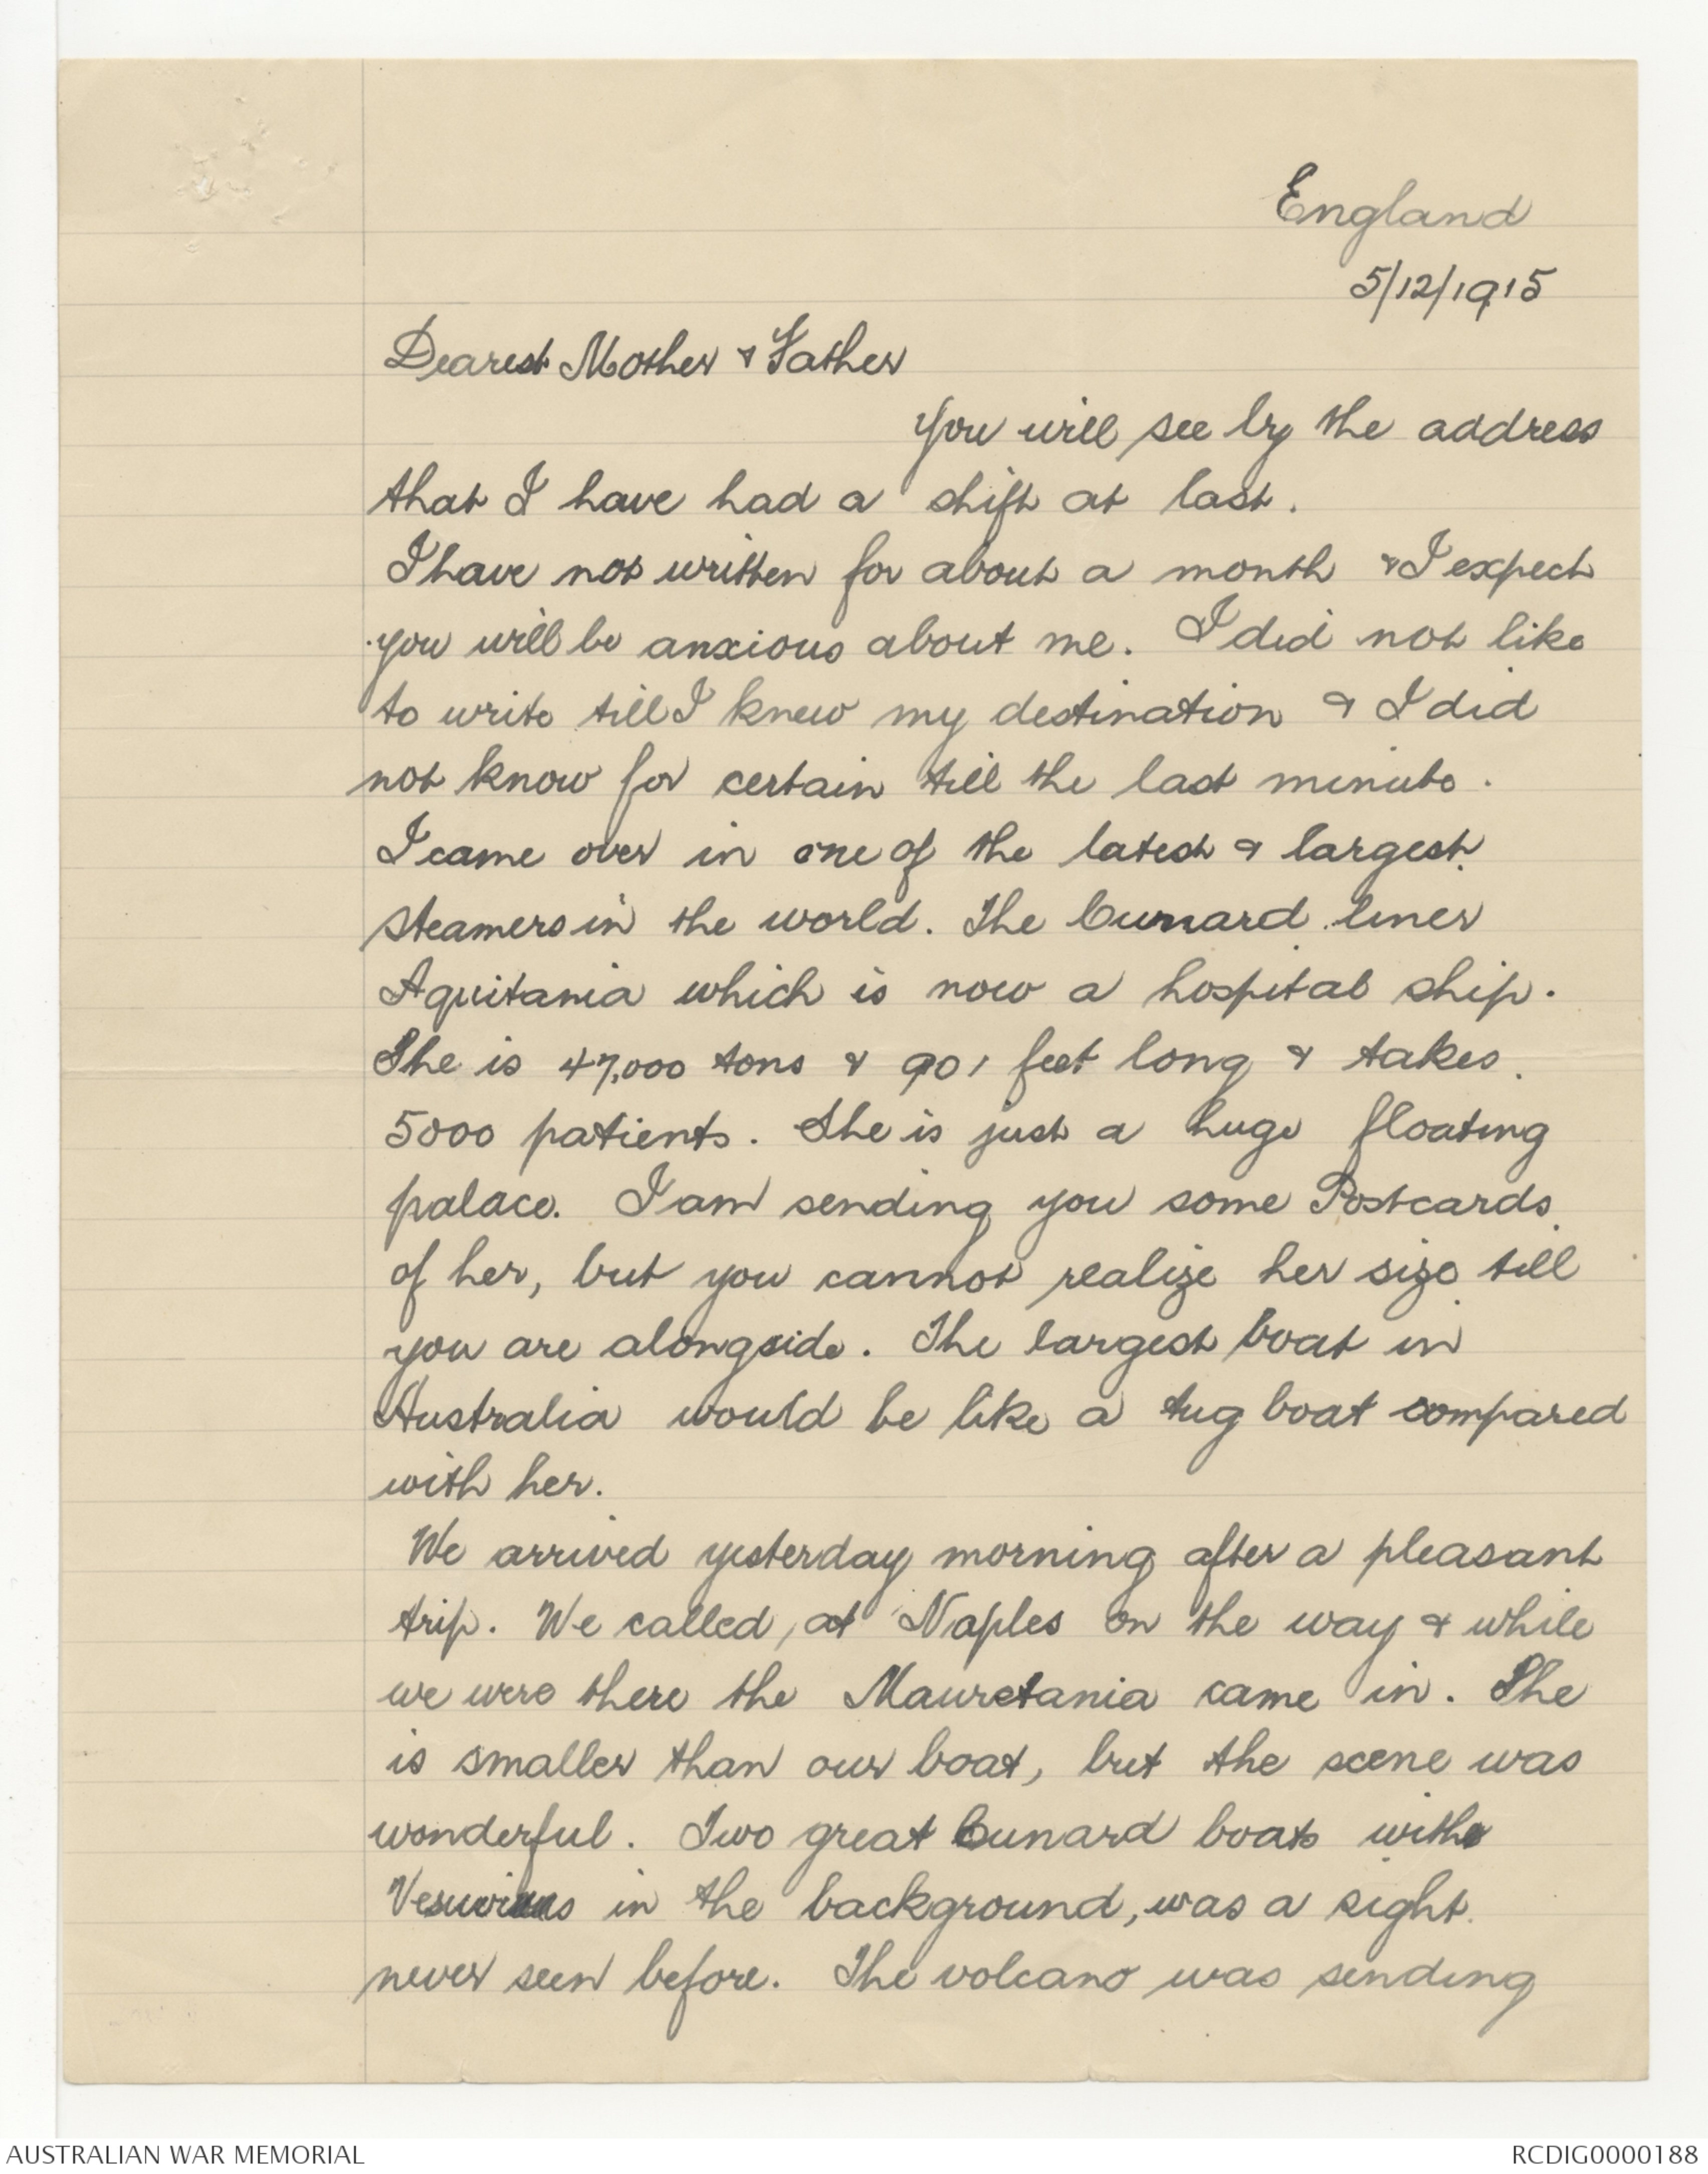 England
5/12/1915
Dearest Mother & Father
You will see by the address
that I have had a shift at last.
I have not written for about a month & I expect
you will be anxious about me. I did not like
to write till I knew my destination & I did
not know for certain till the last minute.
I came over in one of the latest & largest
steamers in the world. The Cunard liner
Aquitania which is now a hospital ship.
She is 47,000 tons & 901 feet long & takes
5000 patients. She is just a huge floating
palace. I am sending you some Postcards
of her, but you cannot realize her size till
you are alongside. The largest boat in
Australia would be like a tug boat compared
with her.
We arrived yesterday morning after a pleasant
trip. We called at Naples on the way & while
we were there the Mauretania came in. She
is smaller than our boat, but the scene was
wonderful. Two great Cunard boats with
Vesuvius in the background, was a sight
never seen before. The volcano was sending
AUSTRALIAN WAR MEMORIAL
RCDIG0000188